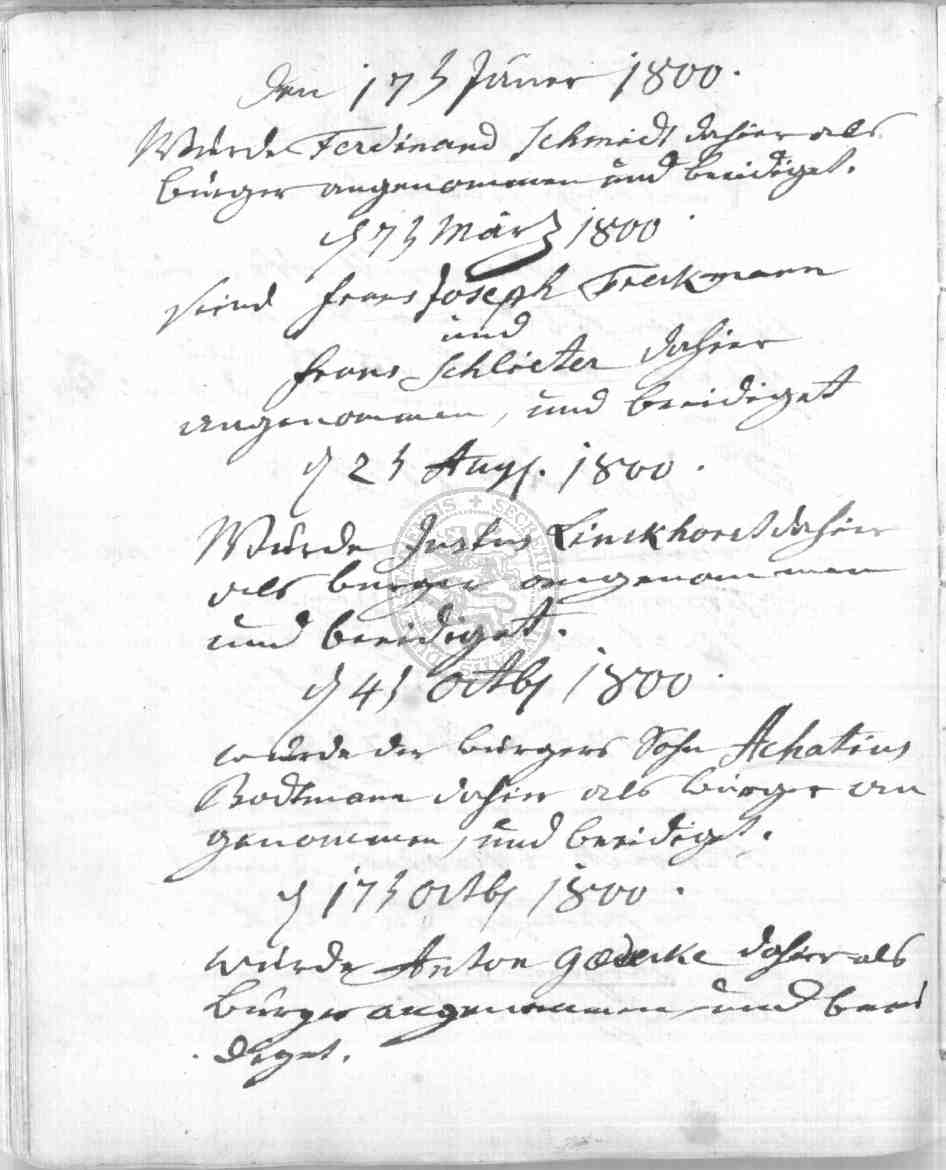 Den 17t Jäner 1800.
Wurde Ferdinand Schmidt dahier als
bürger angenommen und beeidiget.
d 7t März 1800.
sind Frans Joseph Freckmann
und
Frans Schlöeter dahier
angenommen, und beeidiget
d 2t Aug. 1800.
Wurde Justus Linckhorst dahier
als burger angenommen
und beeidiget.
d 4t Octb 1800.
wurde der burgers Sohn Achatius
Rodtmann dahier als burger an
genommen, und beeidiget.
d 17t Octb 1800.
wurde Anton Gödecke dahier als
bürger angenommen und beei
diget.